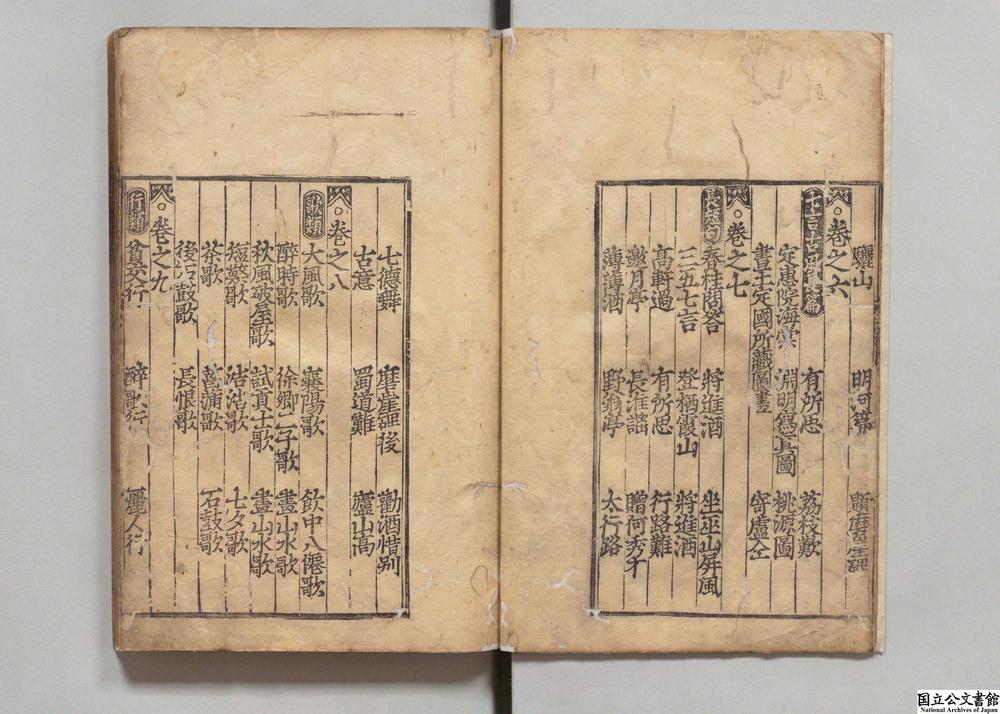 驪山 明河篇 題磨崖碑
○卷之六
七言古風長篇 有所思 荔枝歎
定惠院海棠 淵明寫真圖 桃源圖
書王定國所藏圖畫 寄盧仝
○卷之七
長短句 春桂問答 將進酒 坐巫山屏風
三五七言 登栖霞山 將進酒
高軒過 有所思 行路難
邀月亭 長淮謠 贈何秀才
薄薄酒 野翁亭 太行路
七德舞 磨崖碑後 勸酒惜別
古意 蜀道難 廬山高
○卷之八
歌類 大風歌 襄陽歌 飲中八僊歌
醉時歌 徐卿二子歌 畫山水歌
秋風破屋歌 試貢士歌 畫山水歌
短檠歌 浩浩歌 七夕歌
茶歌 菖蒲歌 石鼓歌
後石鼓歌 長恨歌
○卷之九
行類 貧交行 醉歌行 麗人行
国立公文書館
National Archives of Japan